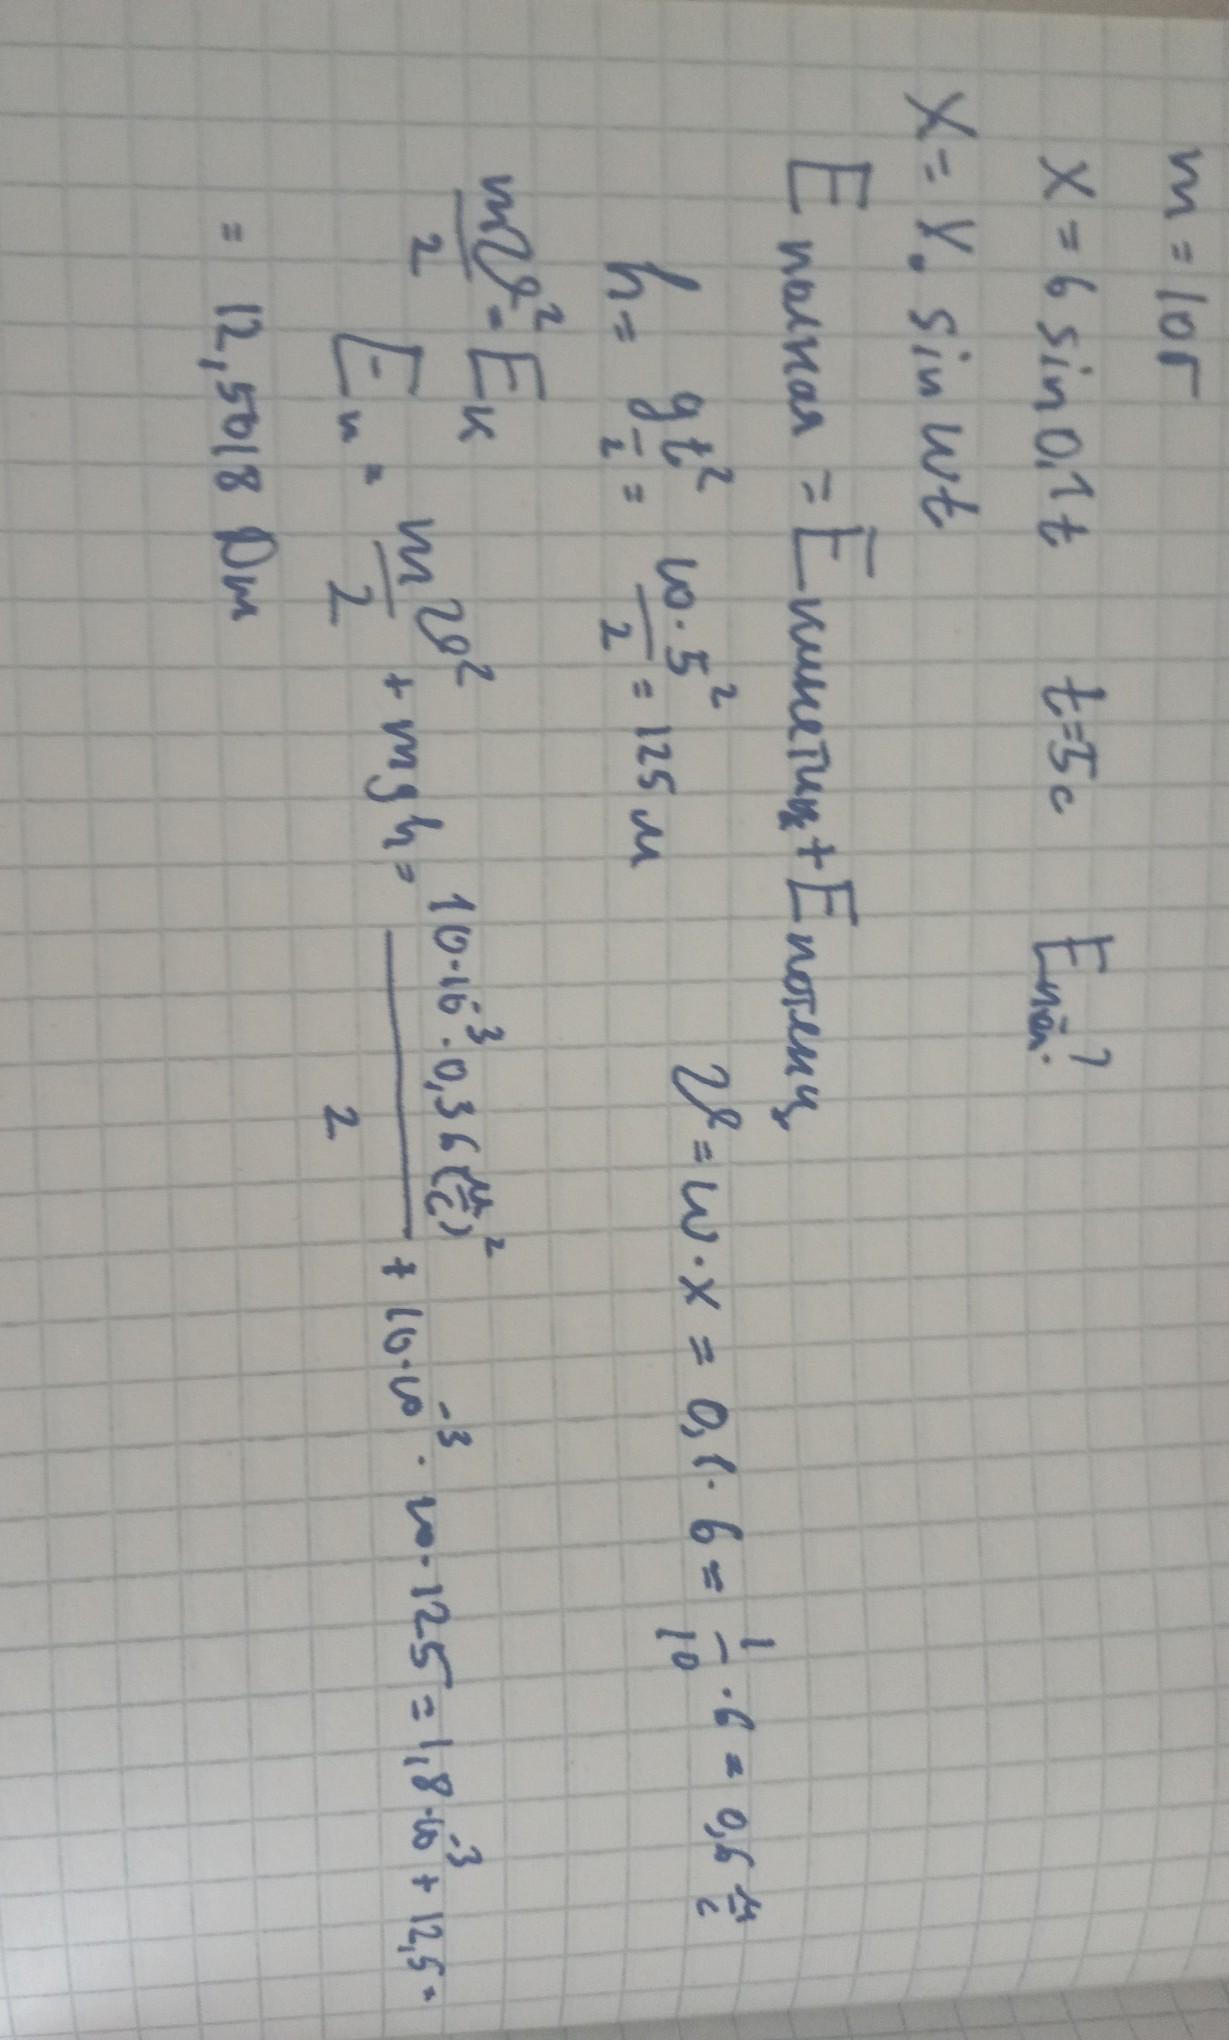 m = 10г
x = 6 sin 0,1t t=5с Eпол.?
x = x₀ sin ωt
E полная = E кинетиц + E потенц
h = gt²/2 = 10·5²/2 = 125 м v = ω·x = 0,1·6 = 1/10·6 = 0,6 м/с
mv²/2 = Eк
Eп = mv²/2 + mgh = 10·10⁻³·0,36(м/с)²/2 + 10·10⁻³·10·125 = 1,8·10⁻³ + 12,5 =
= 12,5018 Дж